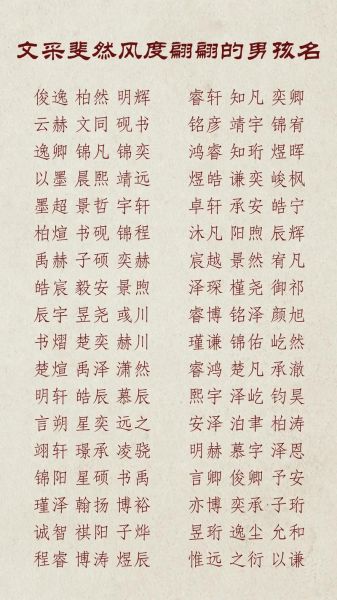 文采斐然风度翩翩的男孩名
俊逸 柏然 明辉 睿轩 知凡 奕卿
云赫 文同 砚书 铭彦 靖宇 锦宥
逸卿 锦凡 锦奕 鸿睿 知珩 煜晖
以墨 晨熙 靖远 煜皓 谦奕 峻枫
墨超 景哲 宇轩 卓轩 承安 皓宁
柏煊 书砚 锦程 沐凡 阳煦 辰辉
禹赫 子硕 奕赫 宸越 景然 宥凡
皓宸 毅安 景煦 泽琛 槿尧 御祁
辰宇 昱尧 或川 睿博 铭泽 颜旭
书熠 楚奕 赫川 瑾谦 锦佑 屹然
楚煊 禹泽 潇然 睿鸿 楚凡 承澈
明轩 皓辰 慕辰 熙宇 泽屹 钧昊
言朔 星奕 远之 安泽 泊聿 柏涛
翊轩 璟承 凌骁 明赫 慕宇 泽恩
锦阳 星硕 书禹 言卿 俊卿 予安
瑾泽 翰扬 博裕 亦博 奕承 子珩
诚智 祺阳 子烨 昱珩 逸尘 允和
程睿 博涛 煜辰 惟远 之衍 以谦